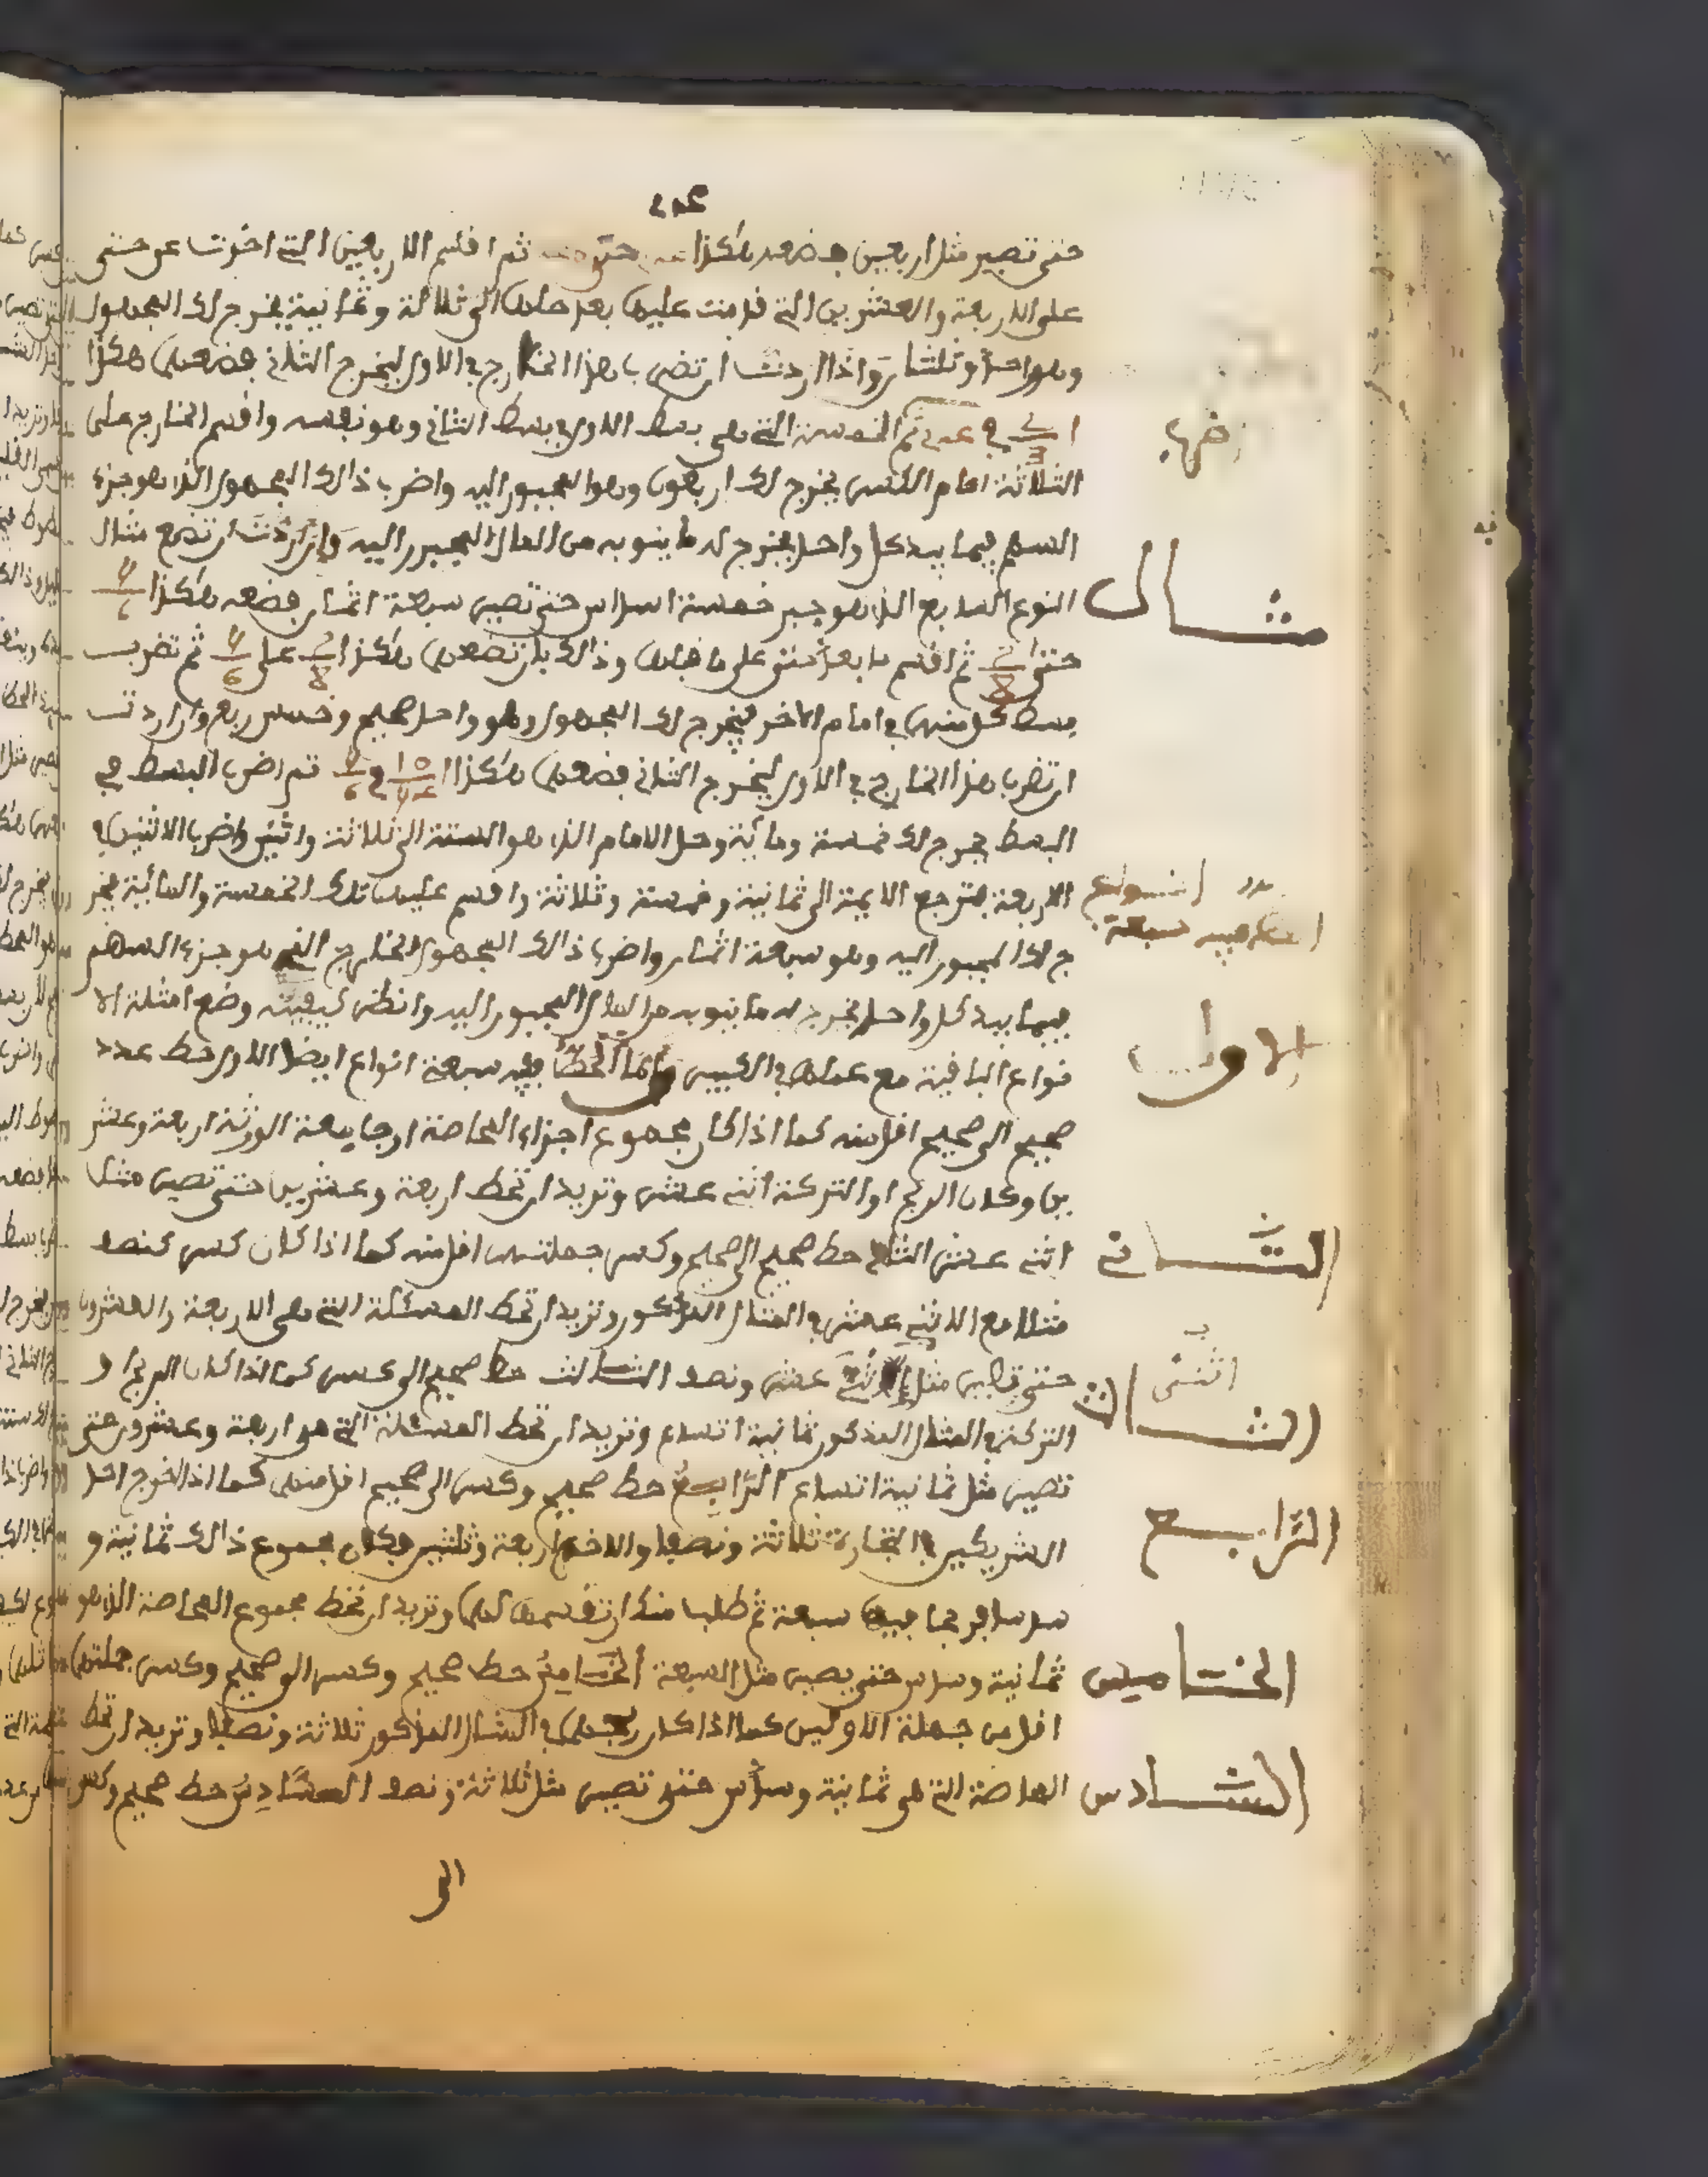 حتى تصير مثل اربعين فضعه هكذا حتى ثم اقسم الاربعين التي اخرت عن حتى
على الاربعة والعشرين التي قدمت عليها بعد حلها الى ثلاثة وثمانية يخرج لك المجهول
وهو واحد وثلثان واذا اردت ان تضرب هذا الخارج في الاول ليخرج الثاني فضعهما هكذا
في ثم الخمسة التي هي بسط الاول في بسط الثاني وهو نفسه واقسم الخارج على
الثلاثة امام الكسر يخرج لك اربعون وهو المجبور اليه واضرب ذالك المجهور الذي هو جزء
السهم فيما بيد كل واحد يخرج له ما ينوبه من المال المجبور اليه وان اردت ان تضع مثال
مثال
النوع السابع الذي هو جبر خمسة اسداس حتى تصير سبعة اثمان فضعه هكذا
حتى ثم اقسم ما بعد حتى على ما قبلها وذالك بان تضعهما هكذا على ثم تضرب
بسط كل منهما في امام الاخر يخرج لك المجهول وهو واحد صحيح وخمس ربع وان اردت
ان تضرب هذا الخارج في الاول ليخرج الثاني فضعهما هكذا في ثم اضرب البسط في
البسط يخرج لك خمسة ومائة وحل الامام الذي هو الستة الى ثلاثة واثنين واضرب الاثنين في
الاربعة فترجع الايمة الى ثمانية وخمسة وثلاثة واقسم عليها تلك الخمسة والمائية يخر
ج لك المجبور اليه وهو سبعة اثمان واضرب ذالك المجهول الخارج الذي هو جزء السهم
سبعة
فيما بيد كل واحد يخرج له ما ينوبه من المال المجبور اليه وانظر كيفية وضع امثلة الا
نواع الباقية مع عملها في الكبير واما الحط ففيه سبعة انواع ايضا الاول حط عدد
الاول
صحيح الى صحيح اقل منه كما اذا كان مجموع اجزاء المحاصة او جامعة الورثة اربعة وعشر
ين وكان الربح او التركة اثني عشر وتريد ان تحط اربعة وعشرين حتى تصير مثل
اثني عشر الثاني حط صحيح الى صحيح وكسر جملتهما اقل منه كما اذا كان كسر كنصف
الثاني
مثلا مع الاثني عشر في المثال المذكور وتريد ان تحط المسئلة التي هي الاربعة والعشرون
حتى تصير مثل عشر ونصف الثالث حط صحيح الى كسر كما اذا كان الربح او
اثنى
الثالث
التركة في المثال المذكور ثمانية اتساع وتريد ان تحط المسئلة التي هي اربعة وعشرون حتى
تصير مثل ثمانية اتساع الرابع حط صحيح وكسر الى صحيح اقل منهما كما اذا اخرج احد
الشريكين في التجارة ثلاثة ونصفا والاخر اربعة وثلثين فكان مجموع ذالك ثمانية و
الرابع
سدسا فربحا فيها سبعة ثم طلبا منك ان تقسمها لهما وتريد ان تحط مجموع المحاصة الذي هو
ثمانية وسدس حتى يصير مثل السبعة الخامس حط صحيح وكسر الى صحيح وكسر جملتهما
الخامس
اقل من جملة الاولين كما اذا كان ربحهما في المثال المذكور ثلاثة ونصفا وتريد ان تحط
المحاصة التي هي ثمانية وسدس حتى تصير مثل ثلاثة ونصف السادس حط صحيح وكسر
السادس
الى